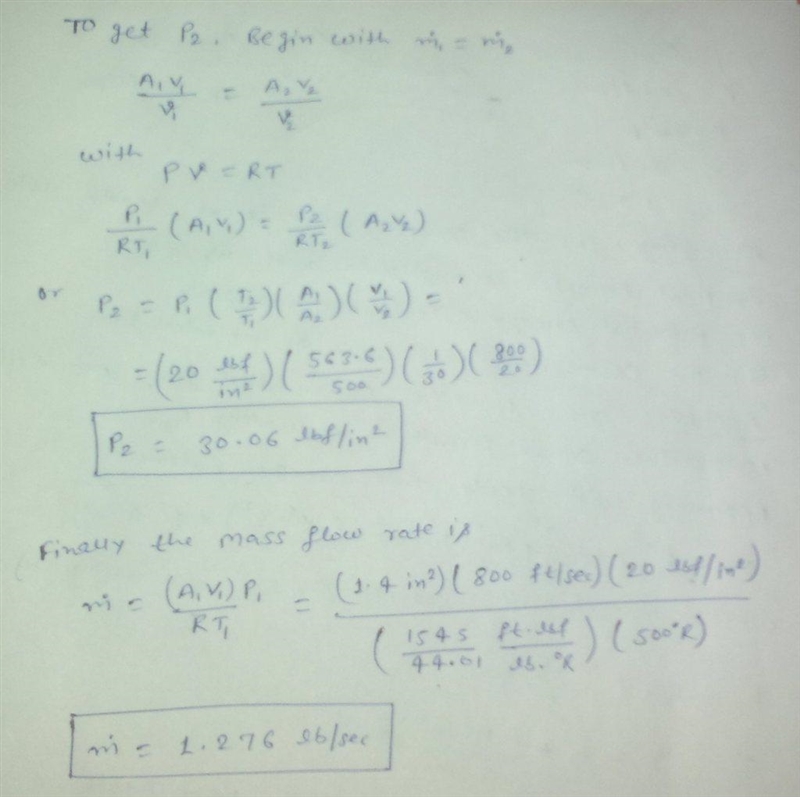 To get P₂. Begin with ṁ₁ = ṁ₂
A₁V₁/v₁ = A₂V₂/v₂
with
Pv = RT
P₁/RT₁ (A₁V₁) = P₂/RT₂ (A₂V₂)
or P₂ = P₁ (T₂/T₁)(A₁/A₂)(V₁/V₂) =
= (20 lbf/in²)(563.6/500)(1/30)(800/20)
P₂ = 30.06 lbf/in²
Finally the mass flow rate is
ṁ = (A₁V₁)P₁/RT₁ = (1.4 in²)(800 ft/sec)(20 lbf/in²)/(1545/44.01 ft.lbf/lb.°R)(500°R)
ṁ = 1.276 lb/sec